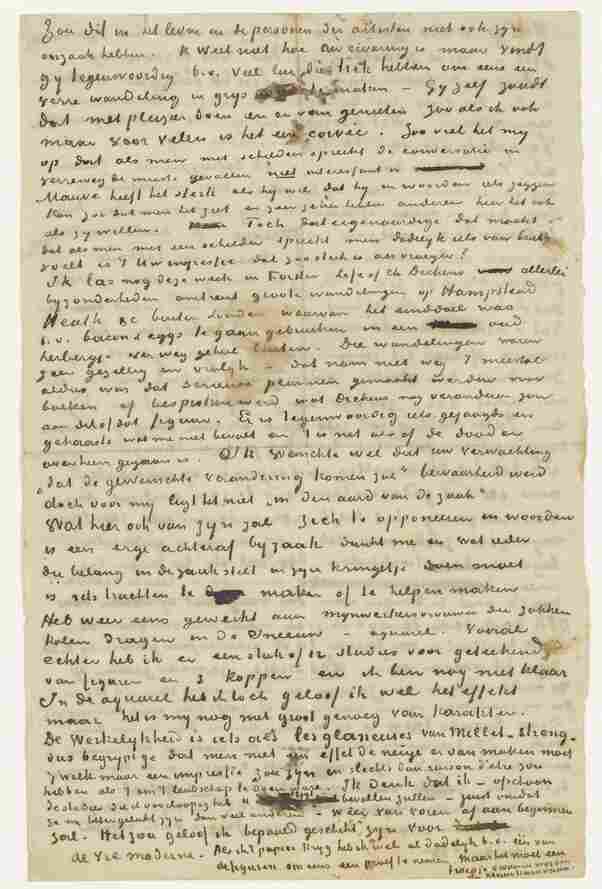 Zou dit in het leven en de personen der artisten niet ook zijn
oorzaak hebben. Ik weet niet hoe Uw ervaring is maar vindt
gy tegenwoordig b.v. veel lui die trek hebben om eens een
verre wandeling in grys te maken – Gy zelf zoudt
dat met pleizier doen en er van genieten zoo als ik ook
maar voor velen is het een corvée. Zoo viel het my
op dat als men met schilders spreekt de conversatie in
verreweg de meeste gevallen niet interessant is
Mauve heeft het sterk als hy wil dat hy in woorden iets zeggen
kan zoo dat men het ziet en zeer zeker hebben anderen hier het ook
als zy willen. Toch dat eigenaardige dat maakt
dat als men met een schilder spreekt men dadelyk iets van buiten
voelt is 't Uw impressie dat zoo sterk is als vroeger?
Ik las nog deze week in Forster life of Ch Dickens allerlei
byzonderheden omtrent groote wandelingen op Hampstead
Heath &c buiten Londen waarvan het eindoel was
b.v. bacon & eggs te gaan gebruiken in een oud
herbergje ver weg geheel buiten. Die wandelingen waren
zeer gezellig en vrolyk – dat nam niet weg 't meestal
aldus was dat serieuse plannen gemaakt werden voor
boeken of besproken werd wat Dickens nog veranderen zou
aan dit of dat figuur. Er is tegenwoordig iets gejaagds en
gehaasts wat me niet bevalt en 't is net alsof de dood er
over heen gegaan is. Ik wenschte wel dat uw verwachting
„dat de gewenschte verandering komen zal" bewaarheid werd
doch voor my ligt het niet „in den aard van de zaak"
Wat hier ook van zijn zal zich te opponeeren in woorden
is een erge achteraf byzaak dunkt me en wat ieder
die belang in de zaak stelt in zyn kringetje doen moet
is iets trachten te maken of te helpen maken
Heb weer eens gewerkt aan mynwerkersvrouwen die zakken
kolen dragen in de sneeuw – aquarel. Vooral
echter heb ik er een stuk of 12 studies voor geteekend
van figuren en 3 koppen en ik ben nog niet klaar
In de aquarel heb ik toch geloof ik wel het effekt
maar het is my nog niet groot genoeg van karakter.
De werkelykheid is iets als les glaneuses van Millet – streng
dus begrypt ge dat men niet een effet de neige er van maken moet
't welk maar een impressie zou zijn en slechts dan raison d'etre zou
hebben als 't om 't landschap te doen was. Ik denk dat ik – opschoon
de studies die ik voorloopig heb U bevallen zullen – juist omdat
ze my beter gelukt zyn dan veel anderen – weer van voren af aan beginnen
zal. Het zou geloof ik bepaald geschikt zijn voor
de Vie moderne. Als ik 't papier kryg heb ik wel al dadelyk b.v. één van
de figuren om eens een proef te nemen. maar het moet een
troepje vrouwen worden